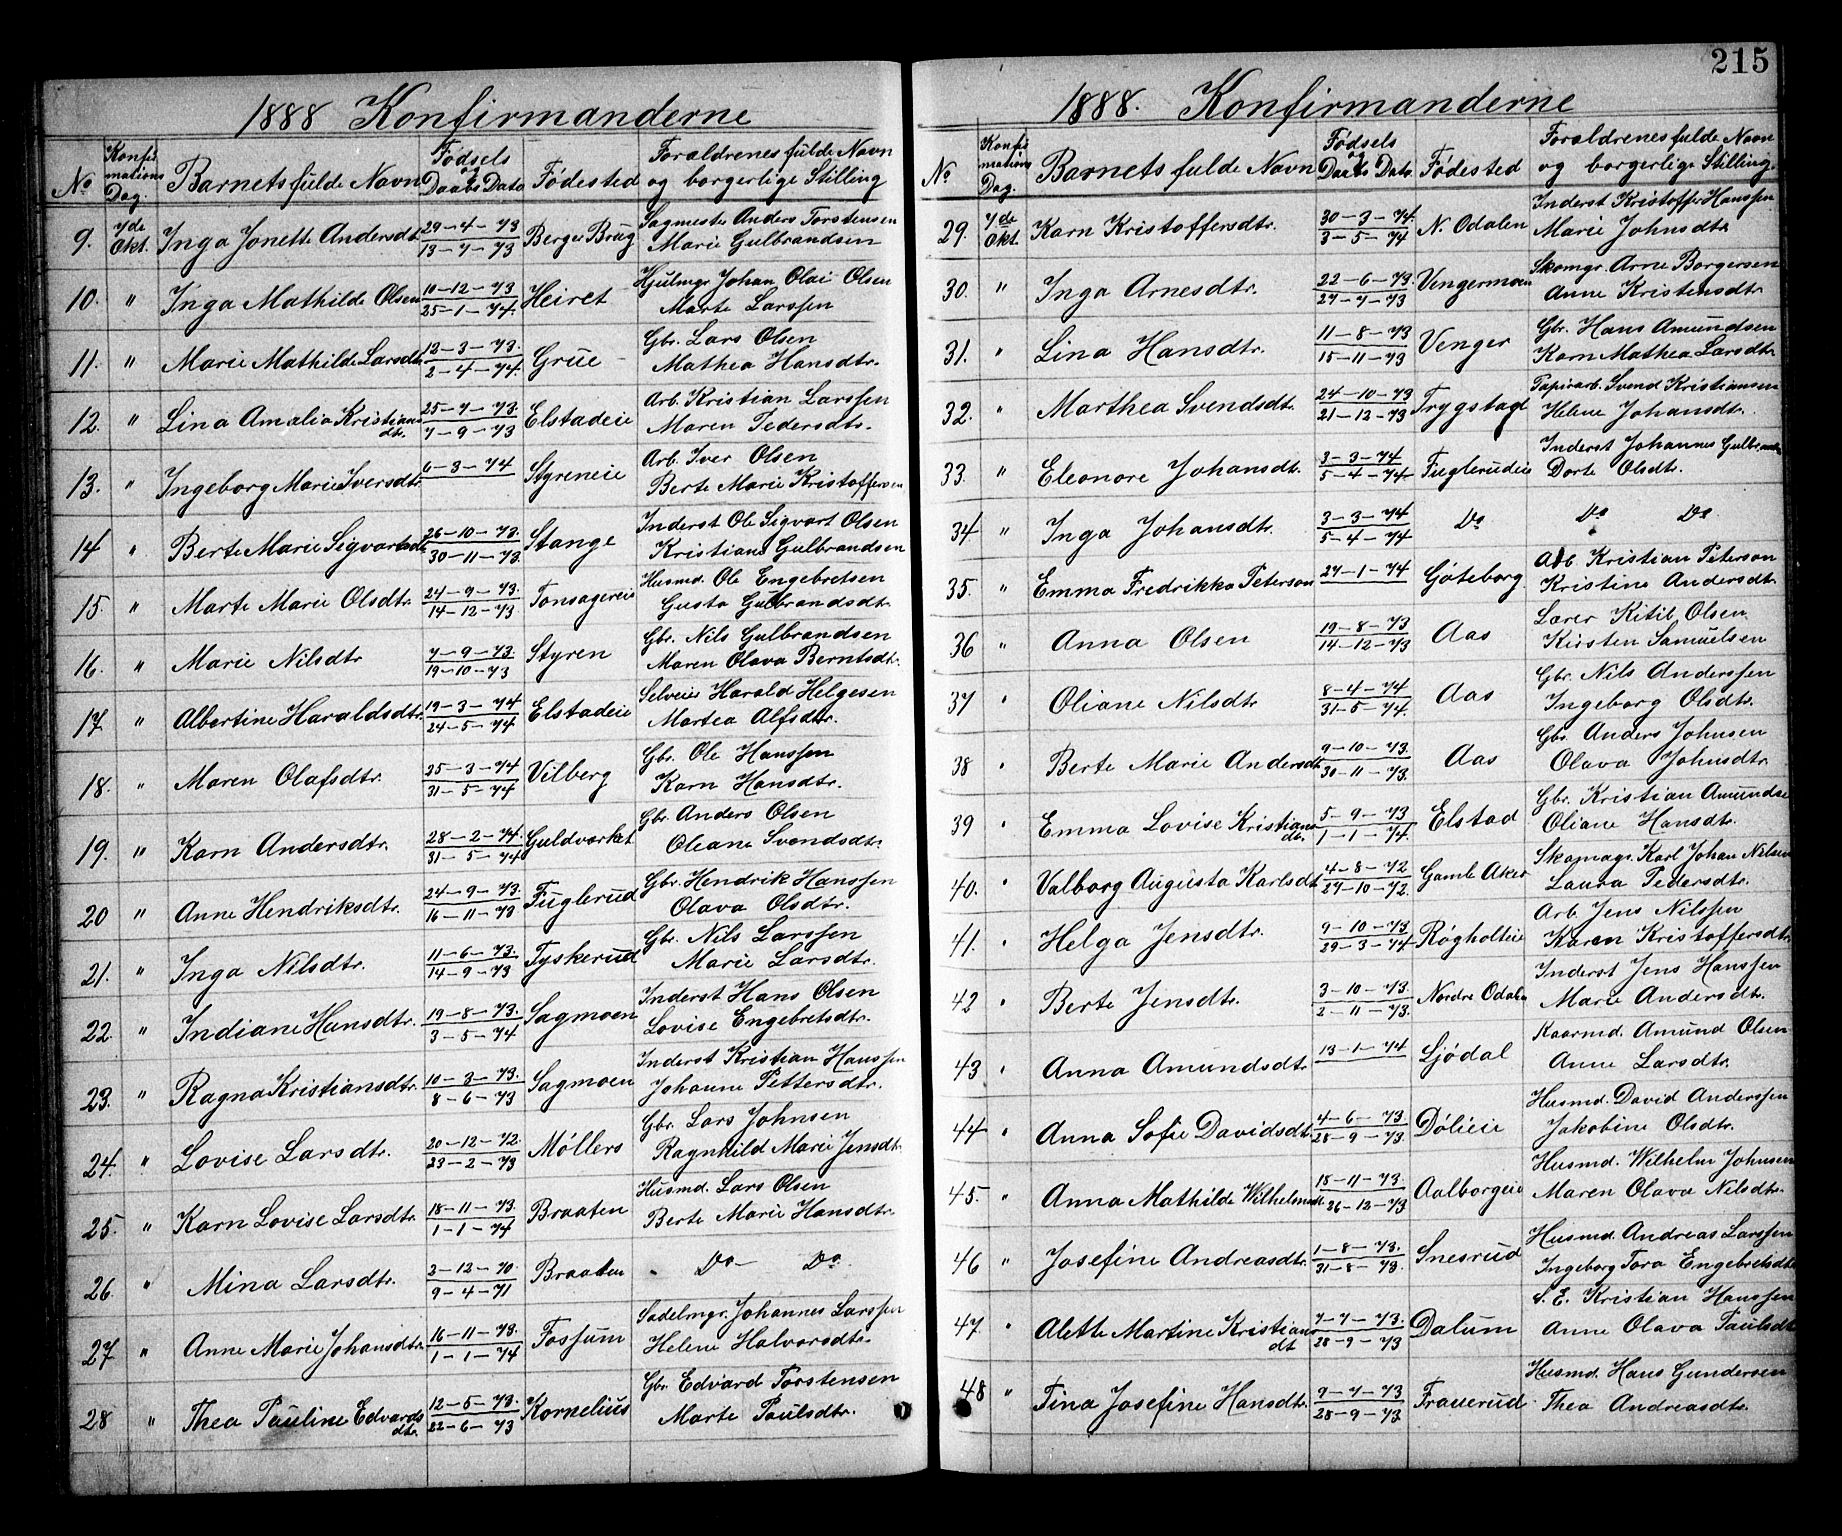 1888 Konfirmanderne
No
Konfirmations Dag.
Barnets fulde Navn
Fødsels og Daabs Dato
Fødested
Foraldrenes fulde Navn og borgerlige Stilling
9. 7de Okt. Inga Jonette Andersdt. 29-4-73 13-7-73 Berger Brug Sagmester Anders Torstensen
Marie Gulbrandsen
10. " Inga Mathilde Olsen 10-12-73 25-1-74. Heiret Hjulmgr Johan Olai Olsen
Marte Larssen
11. " Marie Mathilde Larsdtr 12-3-73. 2-4-74. Grue Gbr. Lars Olsen
Mathea Hansdtr.
12. " Lina Amalia Kristians dtr. 25-7-73. 7-9-73 Elstadeie Arb. Kristian Larssen
Maren Pedersdtr.
13. " Ingeborg Marie Iversdtr. 6-3-74 Styreneie Arb. Iver Olsen
Berte Marie Kristoffersen
14 " Berte Marie Sigvartsdt. 26-10-73. 30-11-73. Stange Inderst Ole Sigvart Olsen
Kristiane Gulbrandsen
15. " Marte Marie Olsdtr. 24-9-73. 14-12-73 Tonsagereie Husmd. Ole Engebretsen
Gusta Gulbrandsdtr.
16. " Marie Nilsdtr 7-9-73. 19-10-73 Styren Gbr. Nils Gulbrandsen
Maren Olava Berntsdtr.
17. " Albertine Haraldsdtr. 19-3-74 24-5-74 Elstadeie Selveier Harald Helgesen
Martea Alfsdtr.
18. " Maren Olafsdtr. 25-3-74 31-5-74 Vilberg Gbr. Ole Hanssen
Karn Hansdtr.
19. " Karn Andersdtr. 28-2-74. 31-5-74 Guldverket Gbr. Anders Olsen
Oleane Svendsdtr.
20 " Anne Hendriksdtr. 24-9-73. 16-11-73 Fuglerud Gbr. Hendrik Hanssen
Olava Olsdtr.
21. " Inga Nilsdtr. 11-6-73. 14-9-73 Tyskerud Gbr. Nils Larssen
Marie Larsdtr.
22. " Indiane Hansdtr. 19-8-73. 3-5-74 Sagmoen Inderst Hans Olsen
Lovise Engebretsdtr.
23. " Ragna Kristiansdtr. 10-3-73. 8-6-73 Sagmoen Inderst Kristian Hanssen
Johanne Pettersdtr.
24. " Lovise Larsdtr. 20-12-72. 23-2-73 Møllers Gbr. Lars Johnsen
Ragnhild Marie Jensdtr.
25. " Karn Lovise Larsdtr. 18-11-73. 1-1-74 Braaten Husmd. Lars Olsen
Berte Marie Hansdtr.
26. " Mina Larsdtr. 3-12-70. 9-4-71 Braaten Do Do
27. " Anne Marie Johansdtr. 16-11-73. 1-1-74 Fossum Sadelmgr. Johannes Larssen
Helene Halvorsdtr.
28 " Thea Pauline Edvards dtr. 12-5-73. 22-6-73 Kornelius Gbr. Edvard Torstensen
Marte Paulsdtr.
215
1888. Konfirmanderne
No
Konfirmations Dag.
Barnets fulde Navn
Fødsels og Daabs Dato.
Fødested
Foraldrenes fulde Navn og borgerlige Stilling.
29. 7de Okt. Karn Kristoffersdtr. 30-3-74. 3-5-74 N. Odalen Inderst Kristoffer Hanssen
Marie Johnsdtr
30. " Inga Arnesdtr. 22-6-73. 27-7-73 Vengermoen Skomgr. Arne Borgersen
Anne Kristensdtr.
31. " Lina Hansdtr. 11-8-73 15-11-73 Venger Gbr. Hans Amundsen
Karn Mathea Larsdtr.
32. " Marthea Svendsdt. 24-10-73 21-12-73 Trygstad Papirarb. Svend Kristiansen
Helene Johansdtr.
33. " Eleonore Johansdt. 3-3-74 5-4-74 Fuglerudeie Inderst Johannes
Dorte Olsdtr.
34 " Inga Johansdtr. 3-3-74 5-4-74 Do Do Do
35. " Emma Fredrikka Peterson 27-1-74 Göteborg. Arb Kristian Peterson
Kristine Andersdtr.
36 " Anna Olsen 19-8-73 14-12-73 Aas Lærer Kitil Olsen.
Kirsten Samuelsen
37 " Oliane Nilsdtr 8-4-74 31-5-74. Aas Gbr. Nils Anderssen
Ingeborg Olsdtr.
38 " Berte Marie Andersdt. 9-10-73. 30-11-73. Aas Gbr. Anders Johnsen
Olava Johnsdtr.
39 " Emma Lovise Kristians dtr. 5-9-73 1-1-74. Elstad Gbr. Kristian Amundse
Oliane Hansdtr.
40. " Valborg Augusta Karlsdt. 4-8-72 27-10-72. Gamle Aker Skomagr. Karl Johan Nilsen
Laura Pedersdtr.
41. " Helga Jensdtr. 9-10-73 29-3-74 Røgholteie Arb. Jens Nilssen
Karen Kristoffersdtr.
42 " Berte Jensdtr. 3-10-73. 2-11-73. Nordre Odalen Inderst Jens Hanssen
Marie Andersdtr.
43 " Anna Amundsdtr 13-1-74 Ljødal Kaarmd. Amund Olsen
Anne Larsdtr.
44 " Anna Sofie Davidsdt. 4-6-73. 28-9-73. Dølieie Husmd. David Anderssen
Jakobine Olsdtr.
45. " Anna Mathilde Wilhelmsdt. 15-11-73. 26-12-73 Aalborgeie Husmd. Wilhelm Johnsen
Maren Olava Nilsdtr.
46 " Josefine Andreasdtr. 1-8-73. 31-8-73. Snesrud Husmd. Andreas Larssen
Ingeborg Tora Engebretsdtr
47 " Alette Martine Kristians dt 7-7-73. 28-9-73 Dalum S. E. Kristian Hanssen
Anne Olava Paulsdt
48 " Tina Josefine Hansdtr. 9-7-73 28-9-73 Frauerud Husmd. Hans Gundersen
Thea Andreasdtr.